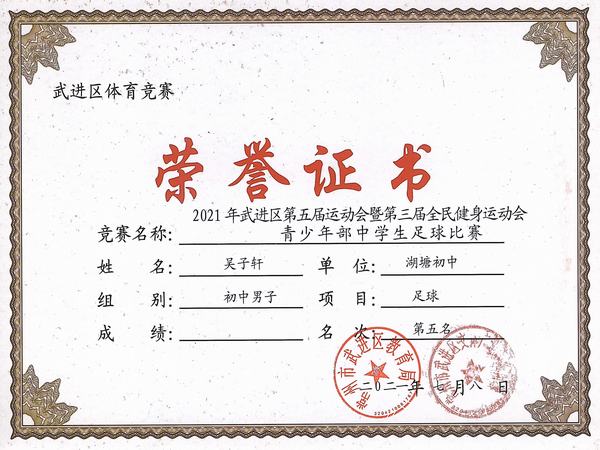 武进区体育竞赛
荣誉证书
2021年武进区第五届运动会暨第三届全民健身运动会
竞赛名称：青少年部中学生足球比赛
姓名：吴子轩 单位：湖塘初中
组别：初中男子 项目：足球
成绩： 名次：第五名
常州市武进区教育局
二〇二一年七月八日